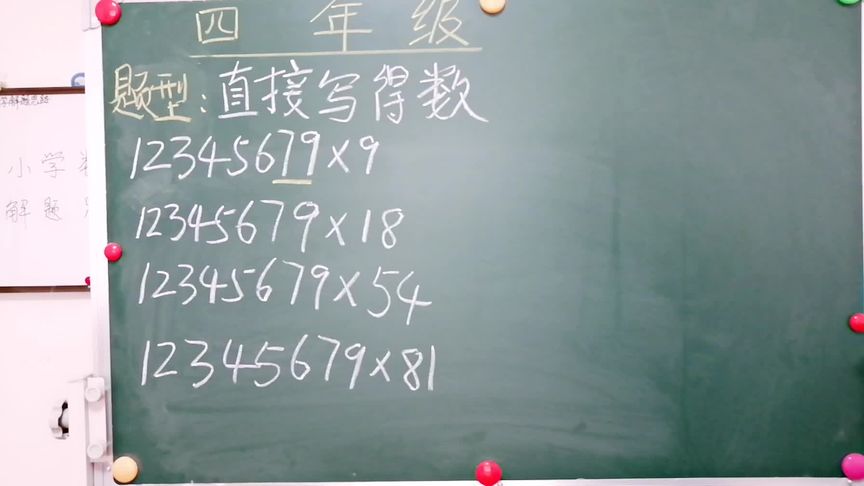 四年级
题型:直接写得数
12345679×9
12345679×18
12345679×54
12345679×81
小学
解题